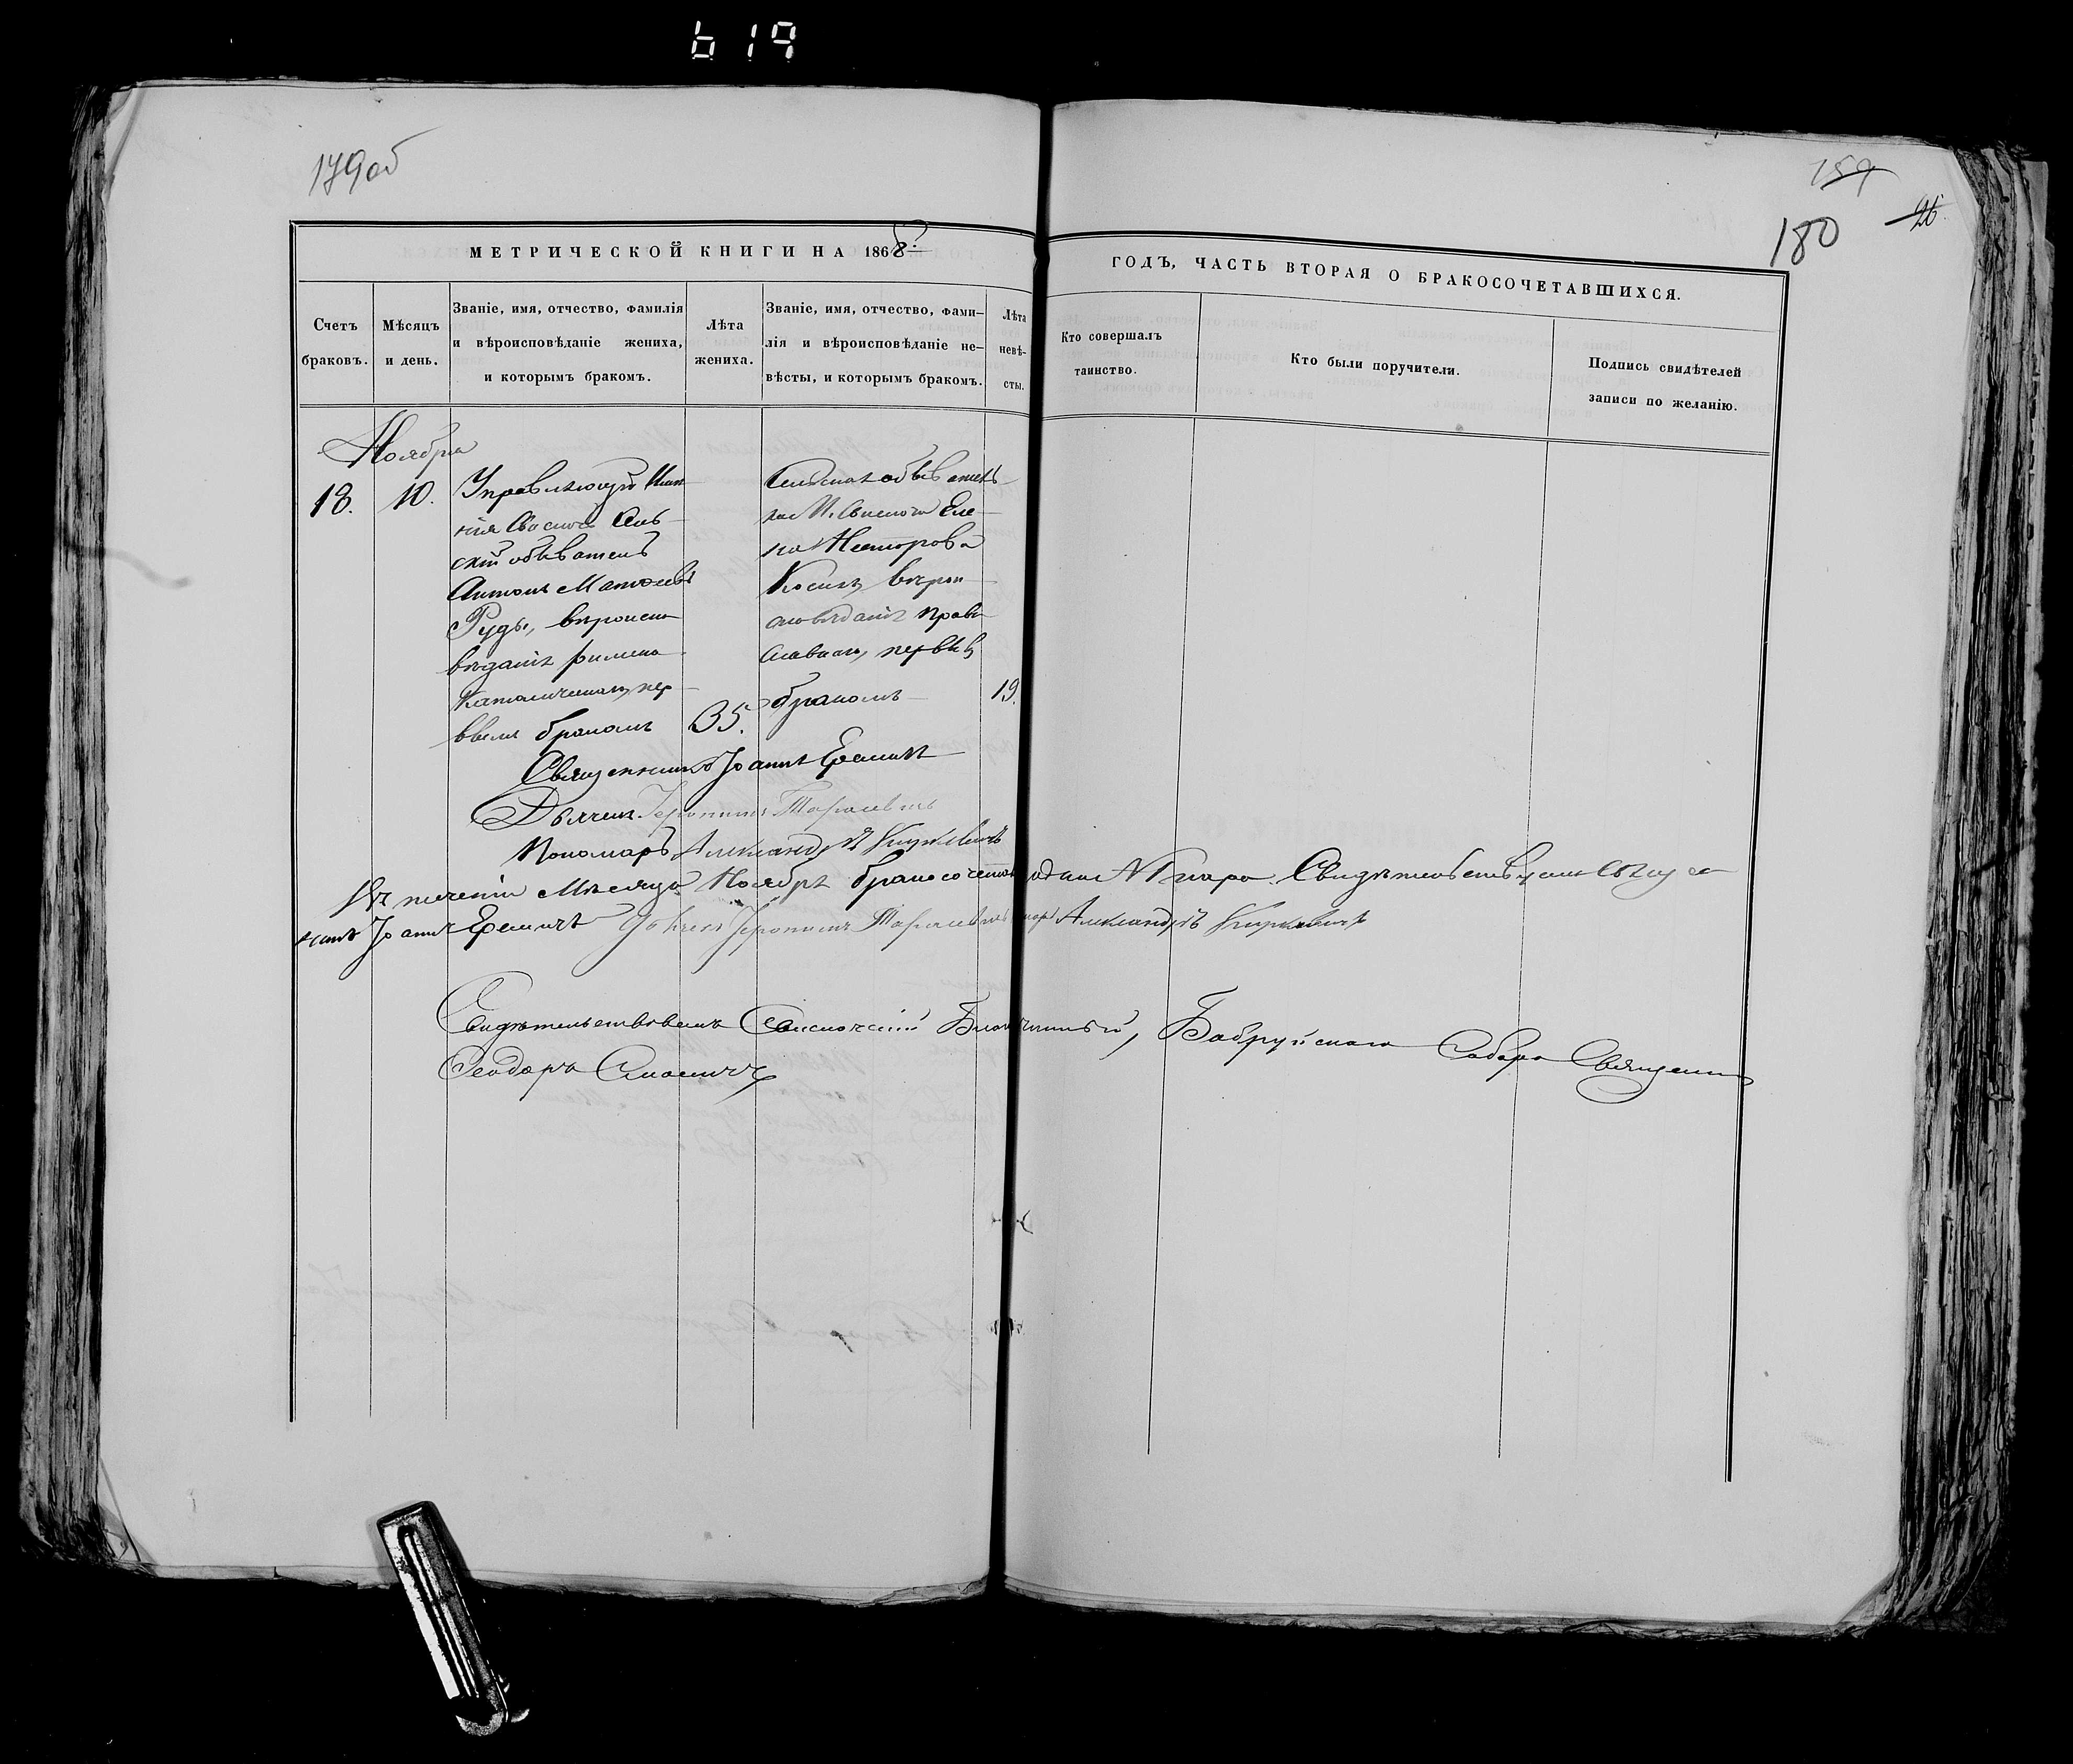 619
179об
159
26
180
МЕТРИЧЕСКОЙ КНИГИ НА 1868.
ГОДЪ, ЧАСТЬ ВТОРАЯ О БРАКОСОЧЕТАВШИХСЯ.
Счетъ
браковъ.
Мѣсяцъ
и день.
Званіе, имя, отчество, фамилія
и вѣроисповѣданіе жениха,
и которымъ бракомъ.
Лѣта
жениха.
Званіе, имя, отчество, фами-
лія и вѣроисповѣданіе не-
вѣсты, и которымъ бракомъ.
Лѣта
невѣ-
сты.
Кто совершалъ
таинство.
Кто были поручители.
Подпись свидѣтелей
записи по желанію.
Ноября
18. 10.
Управляющій Име-
нія Сель-
скій обыватель
Антонъ Матѳеевъ
Рудь, вѣроиспо
вѣданія римско
Католическаго, пер-
вымъ бракомъ
35.
Сельская обыватель-
ка Еле-
на Несторова
вѣрои-
сповѣданія Право
славнаго, первымъ
бракомъ
19.
Священникъ Іоаннъ
Дьячекъ Іеронимъ Тарасевичъ
Пономарь Александръ
Въ теченіи Мѣсяца Ноября бракосочеталась одна пара. Свидѣтельствуемъ Свяще
никъ Іоаннъ Дьячекъ Іеронимъ Тарасевичъ Александръ
Свидѣтельствовалъ Свислочскій Благочинный, Бобруйскаго Собора Священникъ
Ѳеодоръ